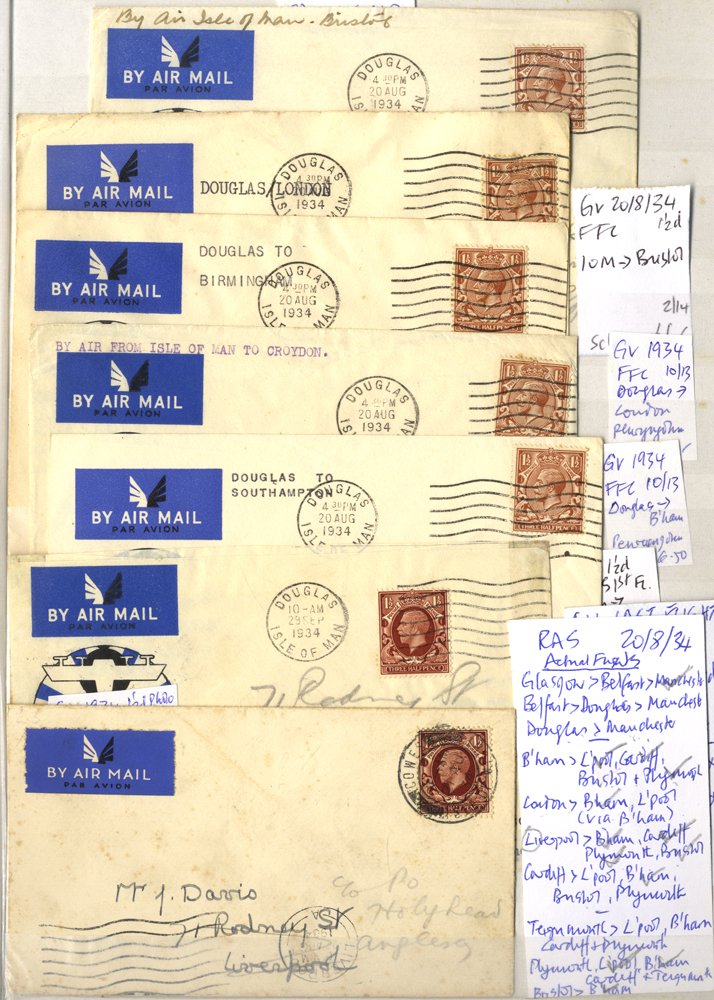 By Air Isle of Man - Bristol
BY AIR MAIL
PAR AVION
DOUGLAS
4 30PM
20 AUG
1934
BY AIR MAIL
PAR AVION
DOUGLAS/LONDON
DOUGLAS
4 30PM
1934
ISLE OF MAN
BY AIR MAIL
PAR AVION
DOUGLAS TO
BIRMINGHAM
DOUGLAS
4 30PM
20 AUG
1934
ISLE OF MAN
THREE HALF PENCE
Gv 20/8/34
FFC 1½d
IOM → Bristol
2/14
BY AIR FROM ISLE OF MAN TO CROYDON.
BY AIR MAIL
PAR AVION
DOUGLAS
4 30PM
20 AUG
1934
Gv 1934
FFC 10/13
Douglas →
London
BY AIR MAIL
PAR AVION
DOUGLAS TO
SOUTHAMPTON
DOUGLAS
4 30PM
20 AUG
1934
THREE HALF PENCE
Gv 1934
FFC 10/13
Douglas →
B'ham
BY AIR MAIL
PAR AVION
DOUGLAS
10-AM
29 SEP
1934
ISLE OF MAN
THREE HALF PENCE
1½d
71 Rodney St
BY AIR MAIL
PAR AVION
Mr J. Davis
71 Rodney St
Liverpool
c/o PO
Holyhead
Anglesey
RAS 20/8/34
Actual Flights
Glasgow > Belfast > Manchester
Belfast > Douglas > Manchest
Douglas > Manchester
B'ham > L'pool, Cardiff,
Bristol + Plymouth
London > Bham, L'pool
(via B'ham)
Liverpool > B'ham, Cardiff
Plymouth, Bristol
Cardiff > L'pool, B'ham,
Bristol, Plymouth
Teignmouth > L'pool, B'ham
Cardiff + Plymouth
Plymouth, L'pool, B'ham
Cardiff + Teignmouth
Bristol > B'ham